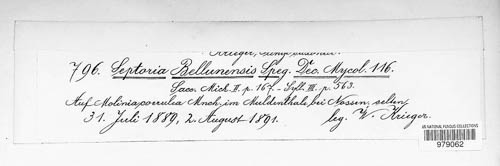 796. Septoria Bellunensis Speg. Dec. Mycol. 116.
Sacc. Mich. II. p. 167. - Syll. III. p. 563.
Auf Molinia coerulea Mnch. im Muldenthale bei Nossen, selten
31. Juli 1889, 2. August 1891. leg. W. Krieger.
US NATIONAL FUNGUS COLLECTIONS
979062